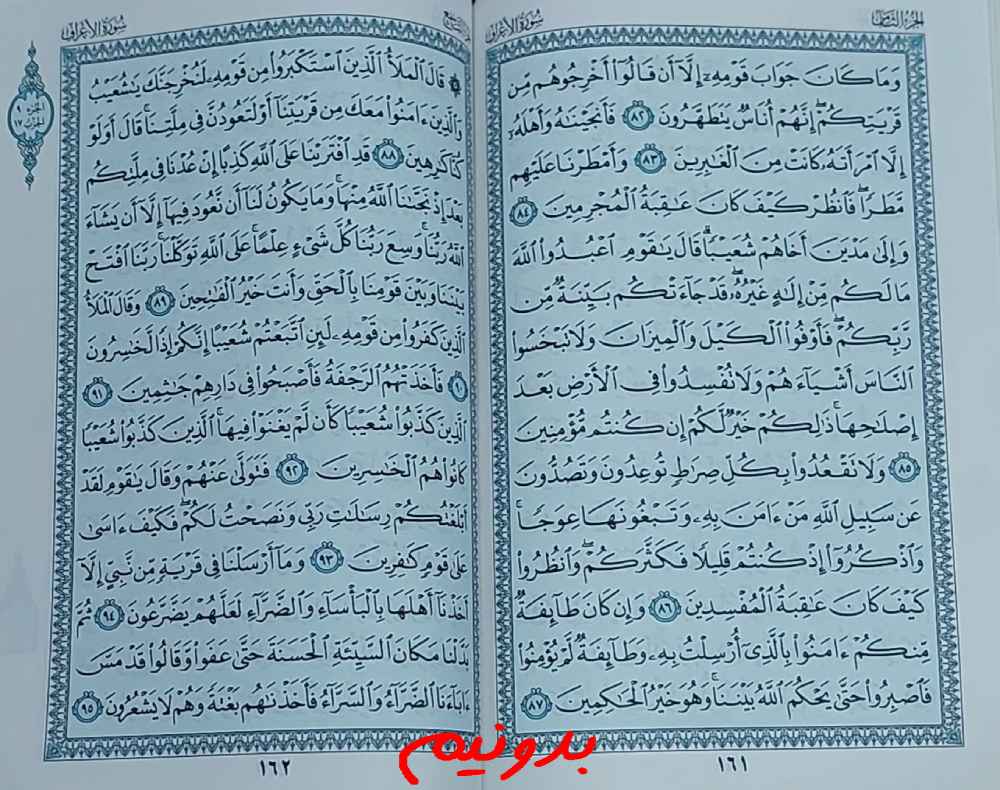 الجزء الثامن
سورة الأعراف
وَمَا كَانَ جَوَابَ قَوْمِهِۦٓ إِلَّآ أَن قَالُوٓا۟ أَخْرِجُوهُم مِّن
قَرْيَتِكُمْ ۖ إِنَّهُمْ أُنَاسٌ يَتَطَهَّرُونَ ٨٢ فَأَنجَيْنَٰهُ وَأَهْلَهُۥٓ
إِلَّا ٱمْرَأَتَهُۥ كَانَتْ مِنَ ٱلْغَٰبِرِينَ ٨٣ وَأَمْطَرْنَا عَلَيْهِم
مَّطَرًا ۖ فَٱنظُرْ كَيْفَ كَانَ عَٰقِبَةُ ٱلْمُجْرِمِينَ ٨٤
وَإِلَىٰ مَدْيَنَ أَخَاهُمْ شُعَيْبًا ۗ قَالَ يَٰقَوْمِ ٱعْبُدُوا۟ ٱللَّهَ
مَا لَكُم مِّنْ إِلَٰهٍ غَيْرُهُۥ ۖ قَدْ جَآءَتْكُم بَيِّنَةٌ مِّن
رَّبِّكُمْ ۖ فَأَوْفُوا۟ ٱلْكَيْلَ وَٱلْمِيزَانَ وَلَا تَبْخَسُوا۟
ٱلنَّاسَ أَشْيَآءَهُمْ وَلَا تُفْسِدُوا۟ فِى ٱلْأَرْضِ بَعْدَ
إِصْلَٰحِهَا ۚ ذَٰلِكُمْ خَيْرٌ لَّكُمْ إِن كُنتُم مُّؤْمِنِينَ
٨٥ وَلَا تَقْعُدُوا۟ بِكُلِّ صِرَٰطٍ تُوعِدُونَ وَتَصُدُّونَ
عَن سَبِيلِ ٱللَّهِ مَنْ ءَامَنَ بِهِۦ وَتَبْغُونَهَا عِوَجًا ۚ
وَٱذْكُرُوٓا۟ إِذْ كُنتُمْ قَلِيلًا فَكَثَّرَكُمْ ۖ وَٱنظُرُوا۟
كَيْفَ كَانَ عَٰقِبَةُ ٱلْمُفْسِدِينَ ٨٦ وَإِن كَانَ طَآئِفَةٌ
مِّنكُمْ ءَامَنُوا۟ بِٱلَّذِىٓ أُرْسِلْتُ بِهِۦ وَطَآئِفَةٌ لَّمْ يُؤْمِنُوا۟
فَٱصْبِرُوا۟ حَتَّىٰ يَحْكُمَ ٱللَّهُ بَيْنَنَا ۚ وَهُوَ خَيْرُ ٱلْحَٰكِمِينَ ٨٧
١٦١
سورة الأعراف
الجزء ٩
الحزب ١٧
۞ قَالَ ٱلْمَلَأُ ٱلَّذِينَ ٱسْتَكْبَرُوا۟ مِن قَوْمِهِۦ لَنُخْرِجَنَّكَ يَٰشُعَيْبُ
وَٱلَّذِينَ ءَامَنُوا۟ مَعَكَ مِن قَرْيَتِنَآ أَوْ لَتَعُودُنَّ فِى مِلَّتِنَا ۚ قَالَ أَوَلَوْ
كُنَّا كَٰرِهِينَ ٨٨ قَدِ ٱفْتَرَيْنَا عَلَى ٱللَّهِ كَذِبًا إِنْ عُدْنَا فِى مِلَّتِكُم
بَعْدَ إِذْ نَجَّىٰنَا ٱللَّهُ مِنْهَا ۚ وَمَا يَكُونُ لَنَآ أَن نَّعُودَ فِيهَآ إِلَّآ أَن يَشَآءَ
ٱللَّهُ رَبُّنَا ۚ وَسِعَ رَبُّنَا كُلَّ شَىْءٍ عِلْمًا ۚ عَلَى ٱللَّهِ تَوَكَّلْنَا ۚ رَبَّنَا ٱفْتَحْ
بَيْنَنَا وَبَيْنَ قَوْمِنَا بِٱلْحَقِّ وَأَنتَ خَيْرُ ٱلْفَٰتِحِينَ ٨٩ وَقَالَ ٱلْمَلَأُ
ٱلَّذِينَ كَفَرُوا۟ مِن قَوْمِهِۦ لَئِنِ ٱتَّبَعْتُمْ شُعَيْبًا إِنَّكُمْ إِذًا لَّخَٰسِرُونَ
٩٠ فَأَخَذَتْهُمُ ٱلرَّجْفَةُ فَأَصْبَحُوا۟ فِى دَارِهِمْ جَٰثِمِينَ ٩١
ٱلَّذِينَ كَذَّبُوا۟ شُعَيْبًا كَأَن لَّمْ يَغْنَوْا۟ فِيهَا ۚ ٱلَّذِينَ كَذَّبُوا۟ شُعَيْبًا
كَانُوا۟ هُمُ ٱلْخَٰسِرِينَ ٩٢ فَتَوَلَّىٰ عَنْهُمْ وَقَالَ يَٰقَوْمِ لَقَدْ
أَبْلَغْتُكُمْ رِسَٰلَٰتِ رَبِّى وَنَصَحْتُ لَكُمْ ۖ فَكَيْفَ ءَاسَىٰ
عَلَىٰ قَوْمٍ كَٰفِرِينَ ٩٣ وَمَآ أَرْسَلْنَا فِى قَرْيَةٍ مِّن نَّبِىٍّ إِلَّآ
أَخَذْنَآ أَهْلَهَا بِٱلْبَأْسَآءِ وَٱلضَّرَّآءِ لَعَلَّهُمْ يَضَّرَّعُونَ ٩٤ ثُمَّ
بَدَّلْنَا مَكَانَ ٱلسَّيِّئَةِ ٱلْحَسَنَةَ حَتَّىٰ عَفَوا۟ وَّقَالُوا۟ قَدْ مَسَّ
ءَابَآءَنَا ٱلضَّرَّآءُ وَٱلسَّرَّآءُ فَأَخَذْنَٰهُم بَغْتَةً وَهُمْ لَا يَشْعُرُونَ ٩٥
١٦٢
بدونيم